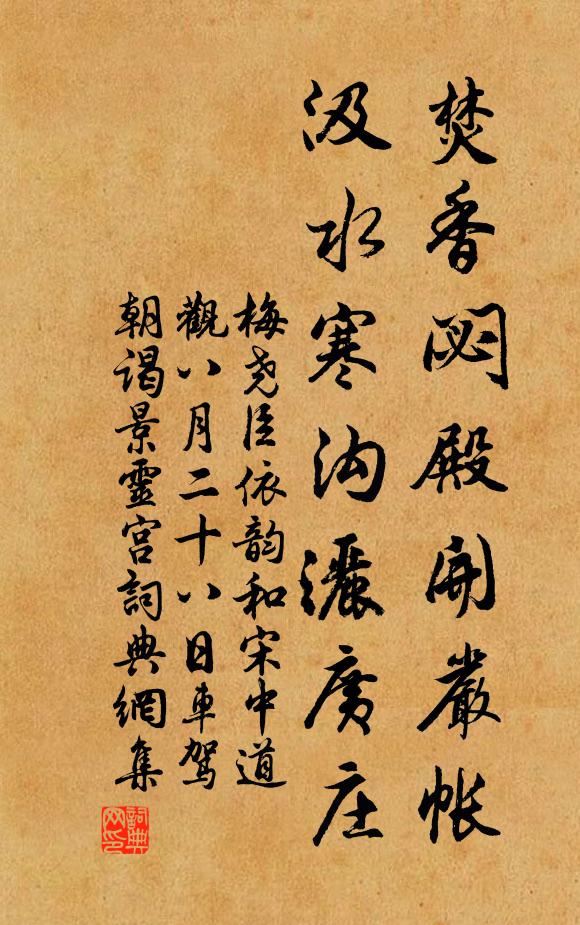 焚香閟殿開嚴帳
汲水寒沟灑廣庄
梅尧臣依韵和宋中道
觀八月二十八日車駕
朝谒景靈宮詞典網集
詞典
网印